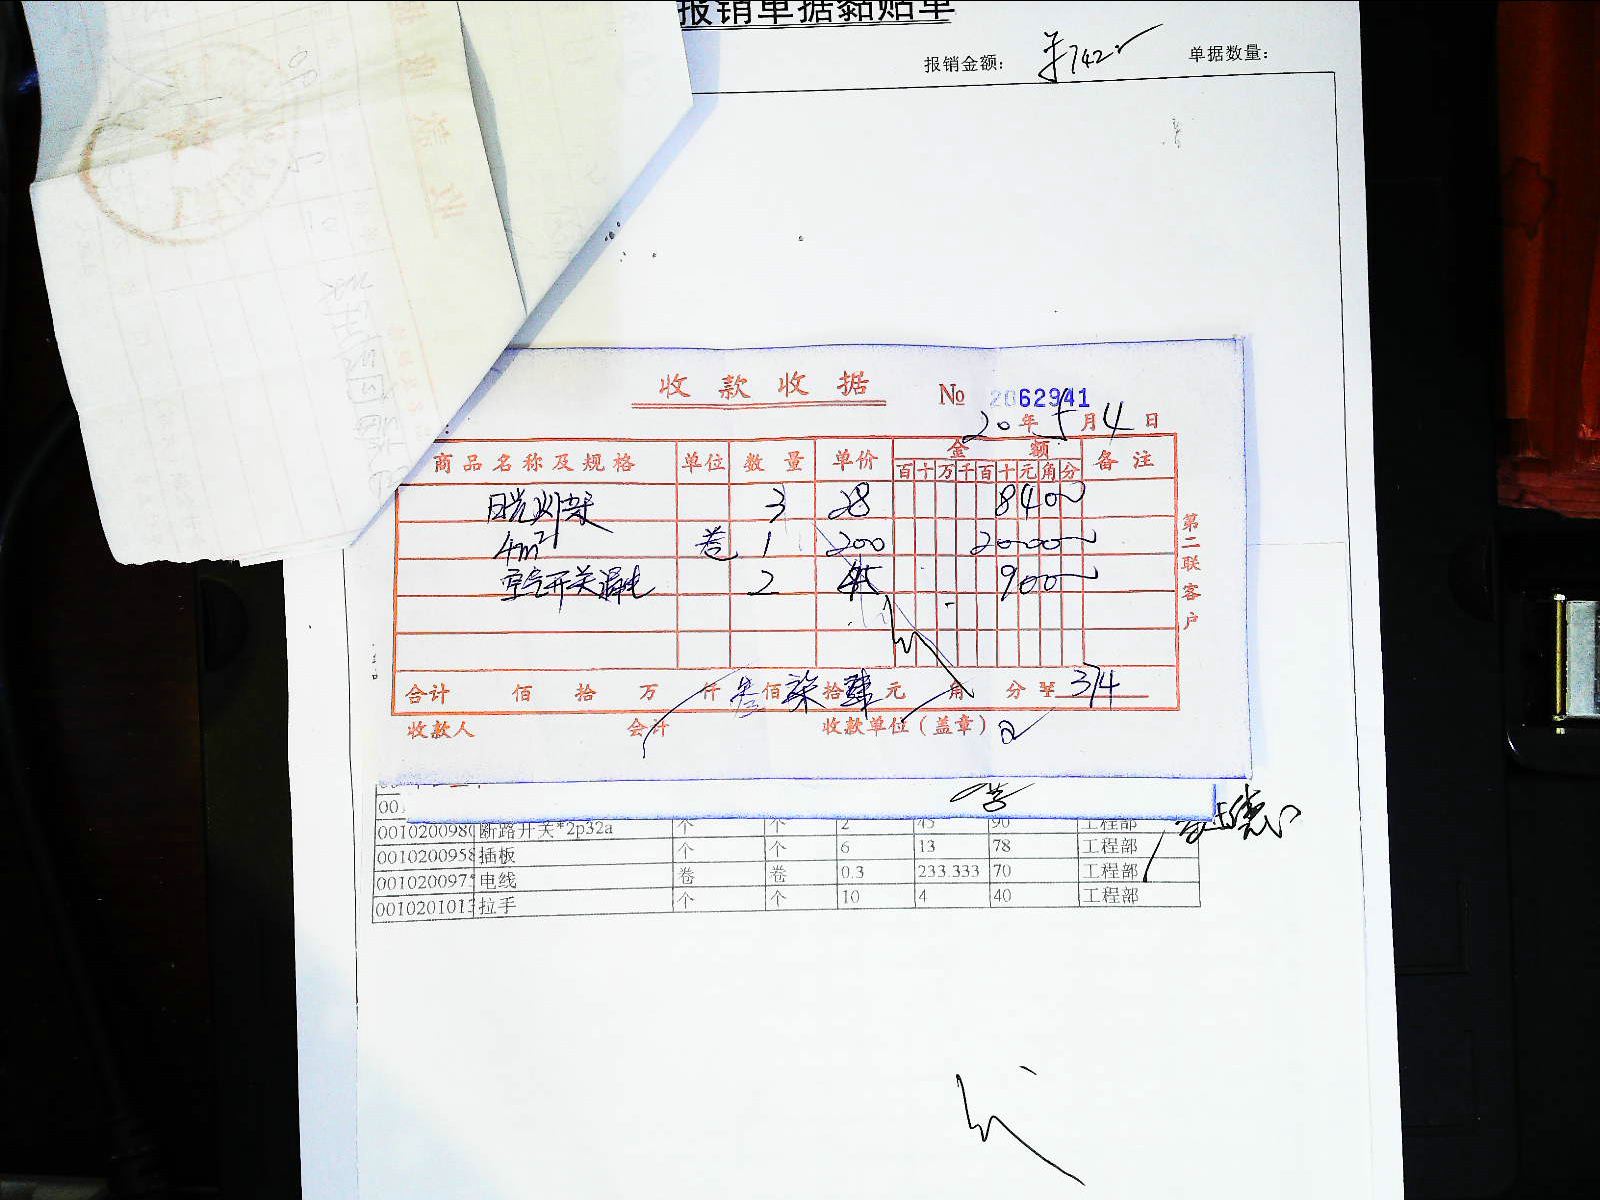 报销单据黏贴单
报销金额: ¥742 单据数量:
收款收据 № 2062941
20年5月4日
商品名称及规格 单位 数量 单价 金额 备注
百十万千百十元角分
日光灯架 3 28 8400
4m² 卷 1 200 20000
空气开关漏电 2 45 9000
第二联客户
合计 佰 拾 万 仟 叁佰柒拾肆元 角 分 ¥ 374
收款人 会计 收款单位(盖章)
00
001020098 断路开关*2p32a 个 个 2 45 90 工程部
001020095 插板 个 个 6 13 78 工程部
001020097 电线 卷 卷 0.3 233.333 70 工程部
001020101 拉手 个 个 10 4 40 工程部